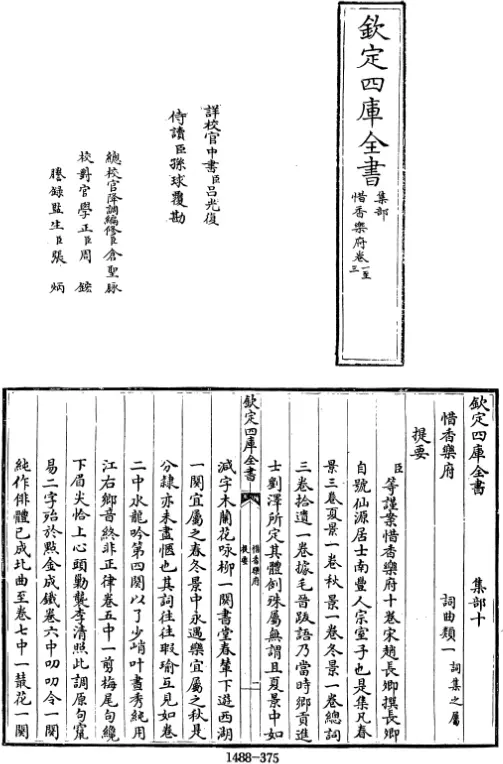 欽定四庫全書
集部
惜香樂府卷一至三
詳校官中書臣呂光復
侍讀臣孫球覆勘
總校官降調編修臣倉聖脉
校對官學正臣周鋐
謄録監生臣張炳
欽定四庫全書 集部十
惜香樂府 詞曲類一 詞集之屬
提要
臣等謹案惜香樂府十卷宋趙長卿撰長卿
自號仙源居士南豐人宗室子也是集凡春
景三卷夏景一卷秋景一卷冬景一卷總詞
三卷拾遺一卷據毛晉跋語乃當時鄉貢進
士劉澤所定其體例殊屬無謂且夏景中如
減字木蘭花咏柳一闋書堂春輦下遊西湖
一闋宜屬之春冬景中永遇樂宜屬之秋是
分隷亦未盡愜也其詞往往瑕瑜互見如卷
二中水龍吟第四闋以了少峭叶晝秀純用
江右鄉音終非正律卷五中一剪梅尾句纔
下眉尖恰上心頭勦襲李清照此調原句竄
易二字殆於點金成鐵卷六中叨叨令一闋
純作俳體已成北曲至卷七中一叢花一闋
欽定四庫全書
惜香樂府
提要
一
1488-375